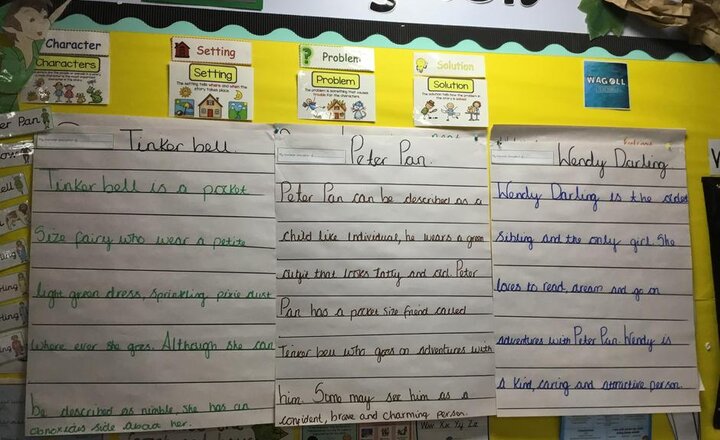 Character
Characters
Setting
Setting
The setting tells where and when the story takes place.
Problem
Problem
The problem is something that causes trouble for the characters
Solution
Solution
The solution tells how the problem in the story is solved
WAGOLL
Tinker bell
Tinker bell is a pocket
Size fairy who wear a petite
light green dress, sprinkling pixie dust
where ever she goes. Although she can
be described as nimble, she has an
obnoxious side about her.
Peter Pan.
Peter Pan can be described as a
child like individual, he wears a green
outfit that looks tatty and old. Peter
Pan has a pocket size friend called
Tinker bell who goes on adventures with
him. Some may see him as a
confident, brave and charming person.
Wendy Darling
Wendy Darling is the oldest
sibling and the only girl. She
loves to read, dream and go on
adventures with Peter Pan. Wendy is
a kind, caring and attractive person.
Pan